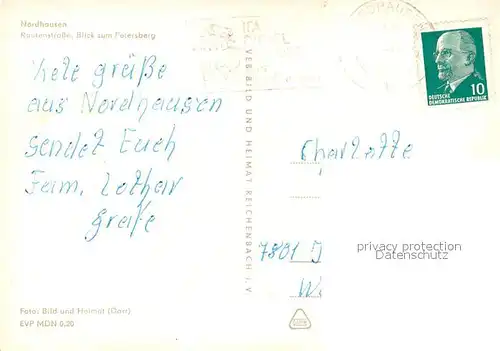 Nordhausen
Rautenstraße, Blick zum Petersberg
Viele grüße
aus Nordhausen
sendet Euch
Fam. Lothar
grafe
Foto: Bild und Heimat (Darr)
EVP MDN 0,20
VEB BILD UND HEIMAT REICHENBACH i. V.
10
DEUTSCHE
DEMOKRATISCHE REPUBLIK
Charlotte
7801
privacy protection
Datenschutz